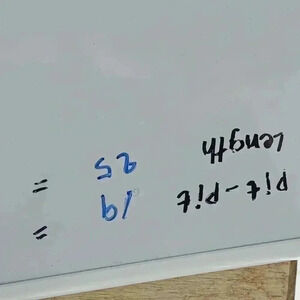 Pit - Pit 19 =
Length 25 =